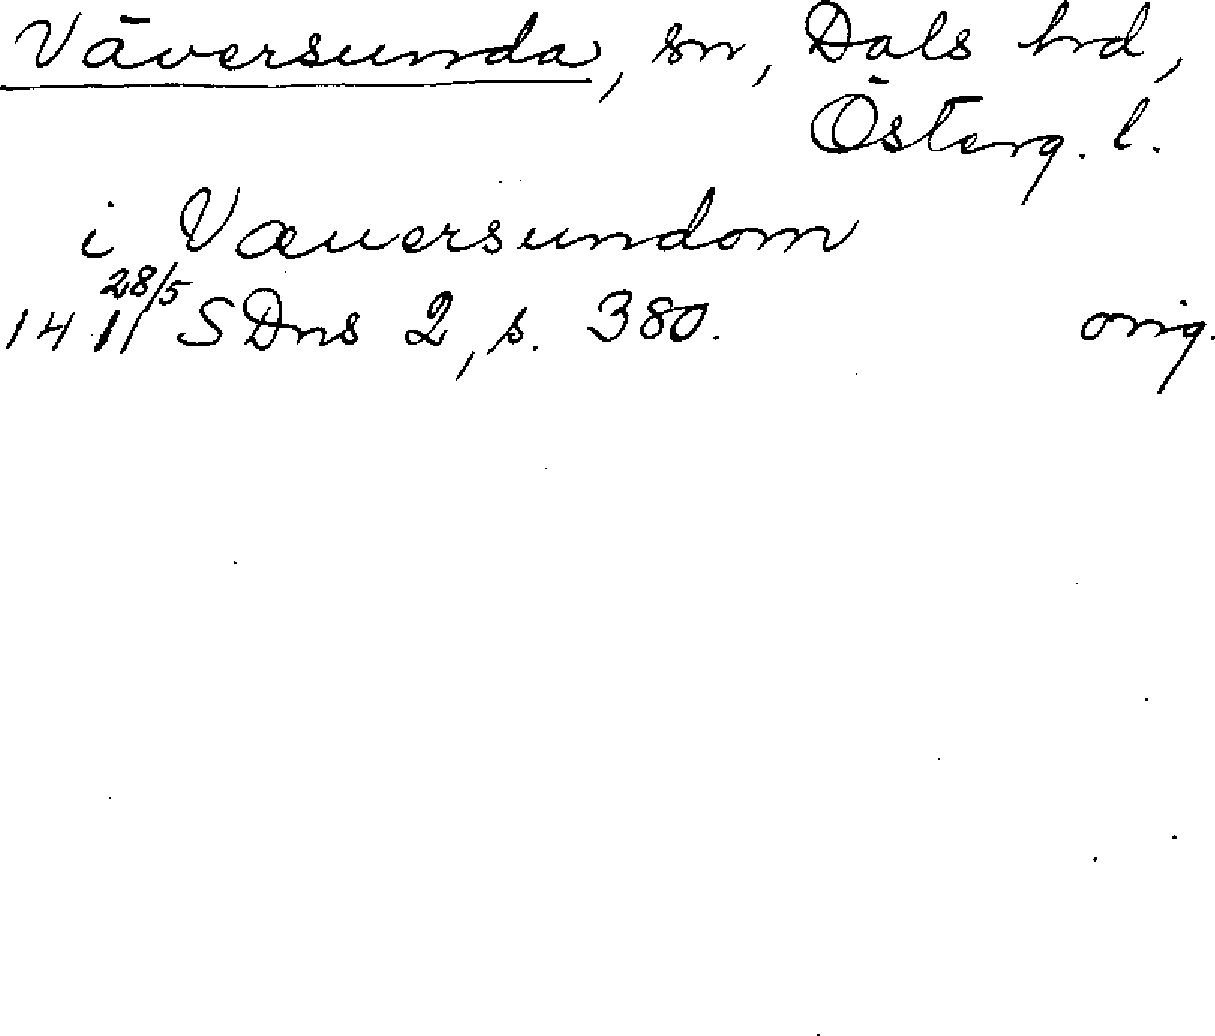 Väversunda, sn, Dals hrd,
Österg. l.
i Væuersundom
28/5
1411 SDns 2, s. 380. orig.